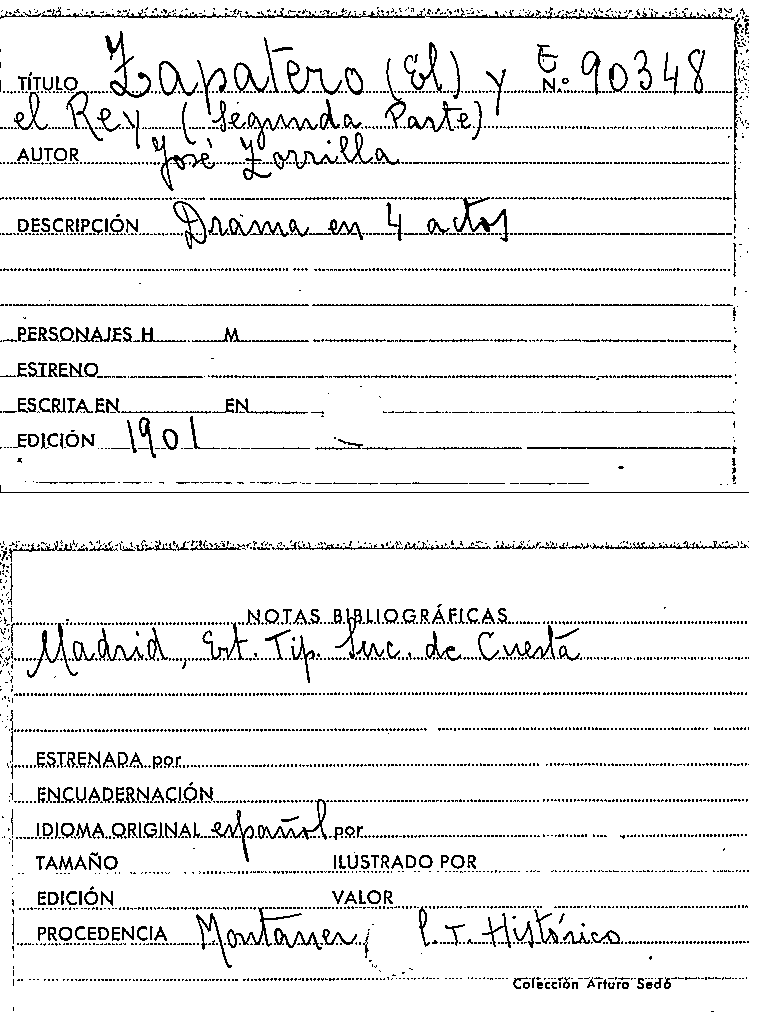 TÍTULO Zapatero (El) y E N.º 90348
el Rey (Segunda Parte)
AUTOR José Zorrilla
DESCRIPCIÓN Drama en 4 actos
PERSONAJES H M
ESTRENO
ESCRITA EN EN
EDICIÓN 1901
NOTAS BIBLIOGRÁFICAS
Madrid, Est. Tip. Suc. de Cuesta
ESTRENADA por
ENCUADERNACIÓN
IDIOMA ORIGINAL español por
TAMAÑO ILUSTRADO POR
EDICIÓN VALOR
PROCEDENCIA Montaner, T. Histórico
Colección Arturo Sedó